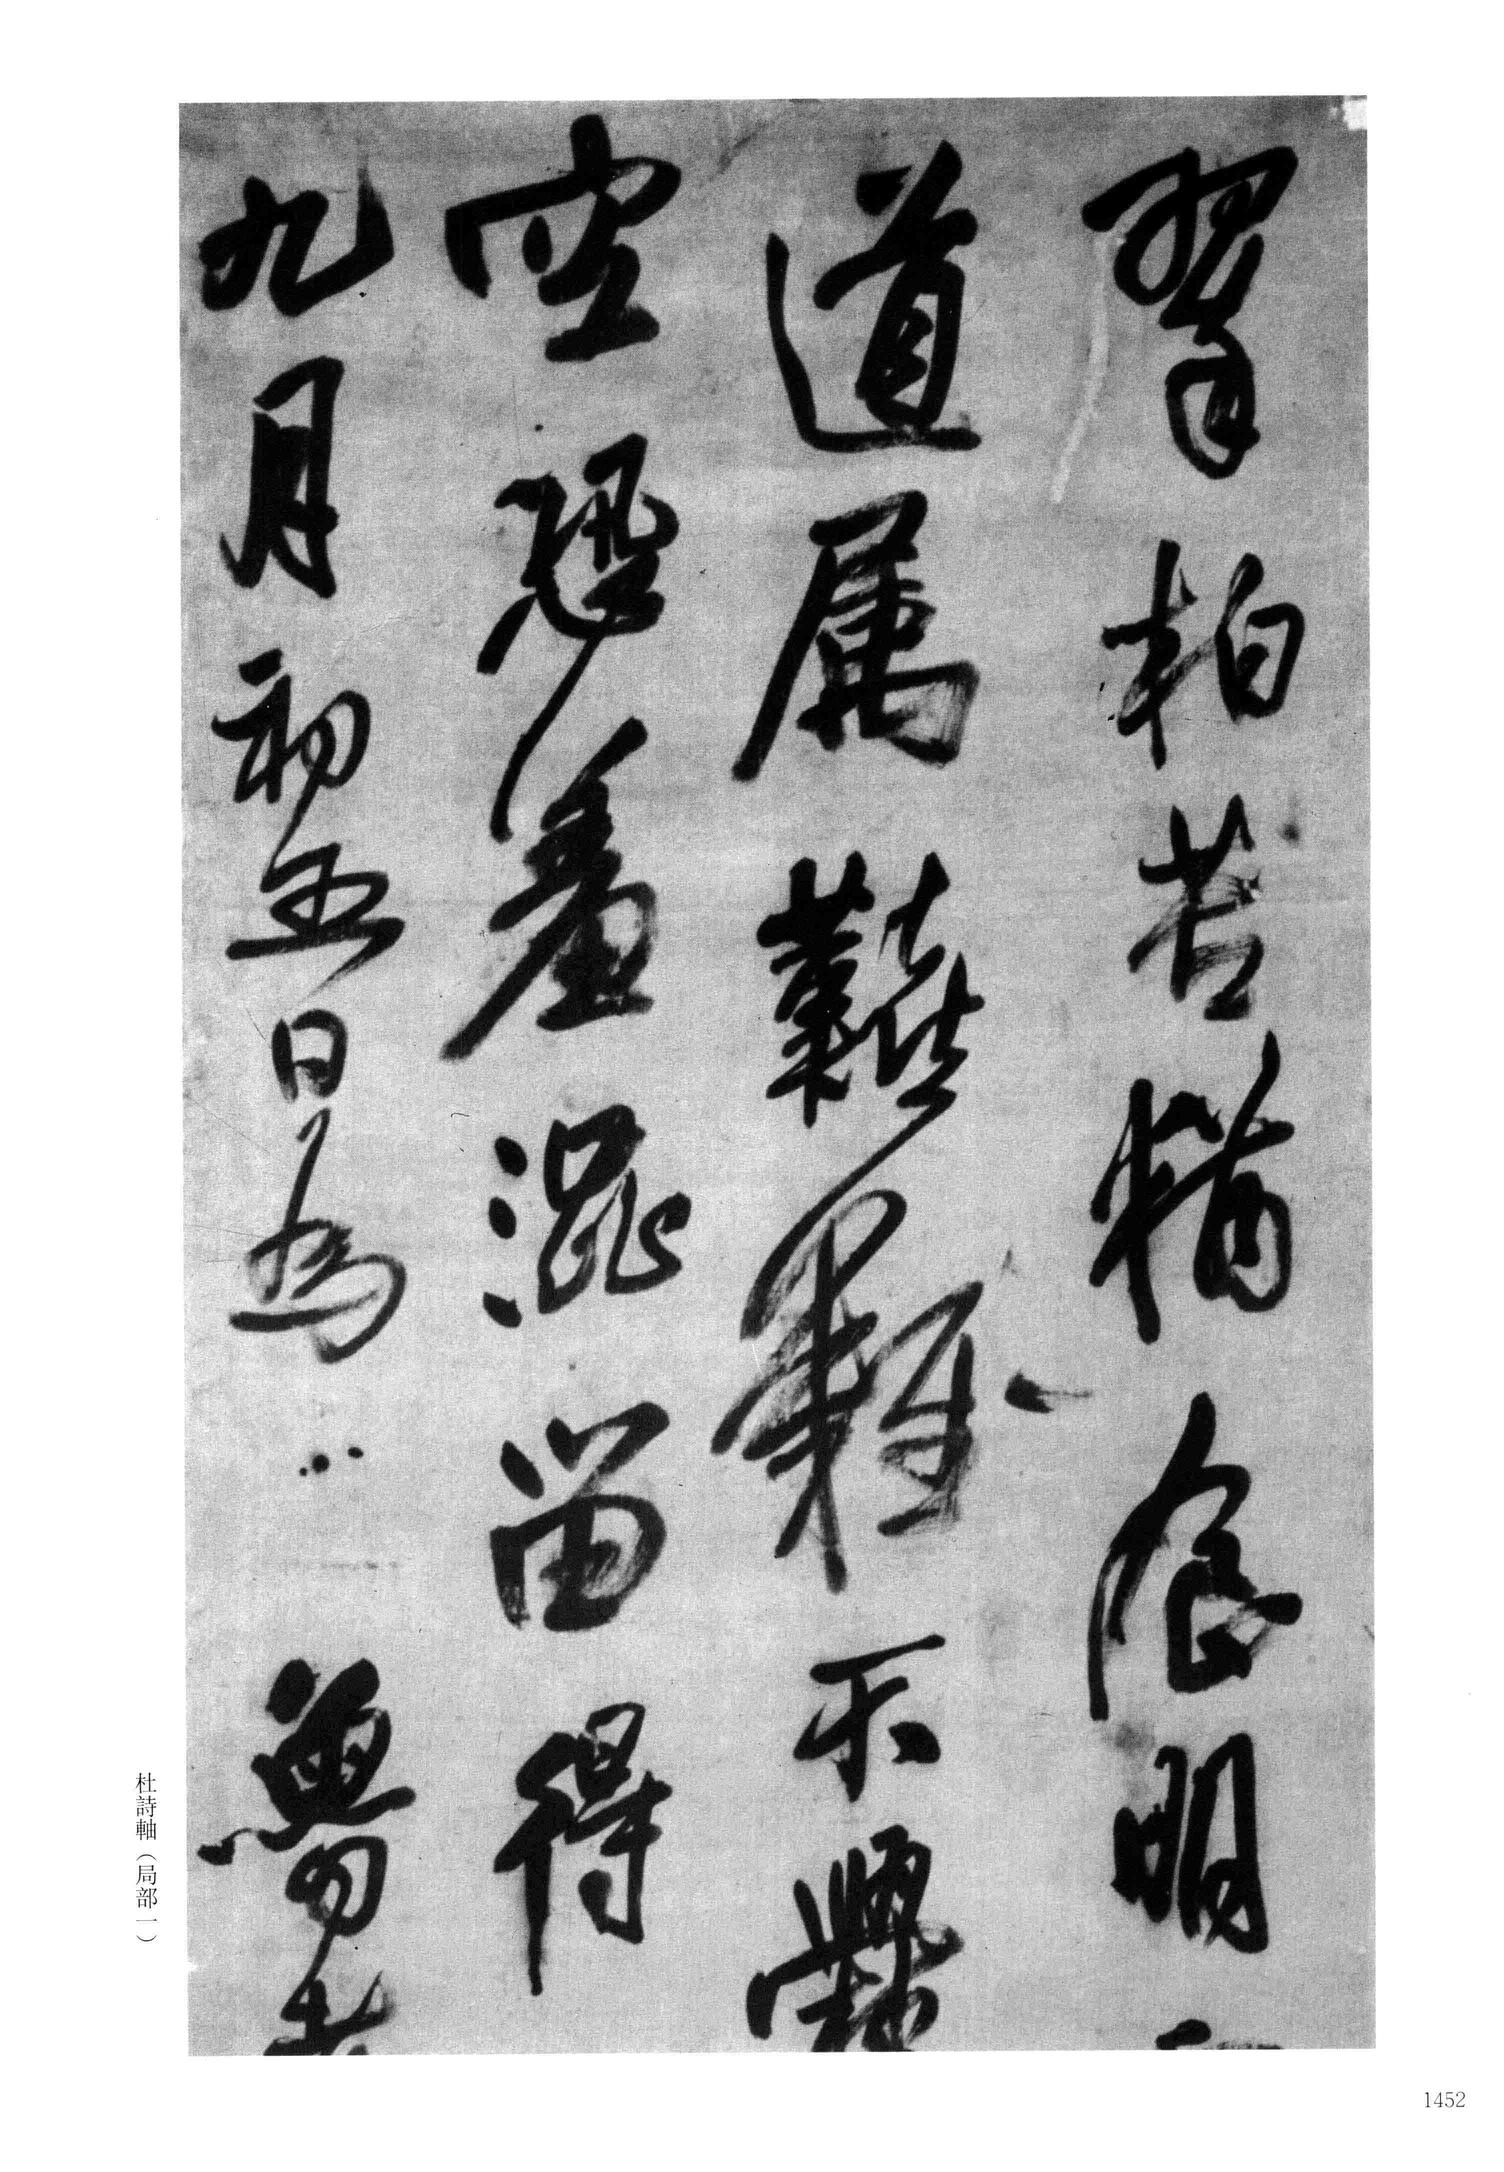 翠柏苦猶食明
道属艱難不爨
空恐羞澀留得
九月初五日為
杜詩軸（局部一）
1452